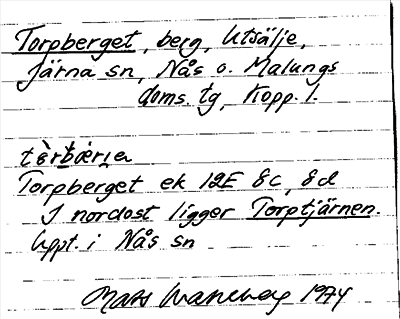 Torpberget, berg, Utsälje,
Järna sn, Nås o. Malungs
doms. tg, Kopp. l.
Torpberget ek 12E 8c, 8d
I nordost ligger Torptjärnen.
Uppt. i Nås sn
Mats 1974